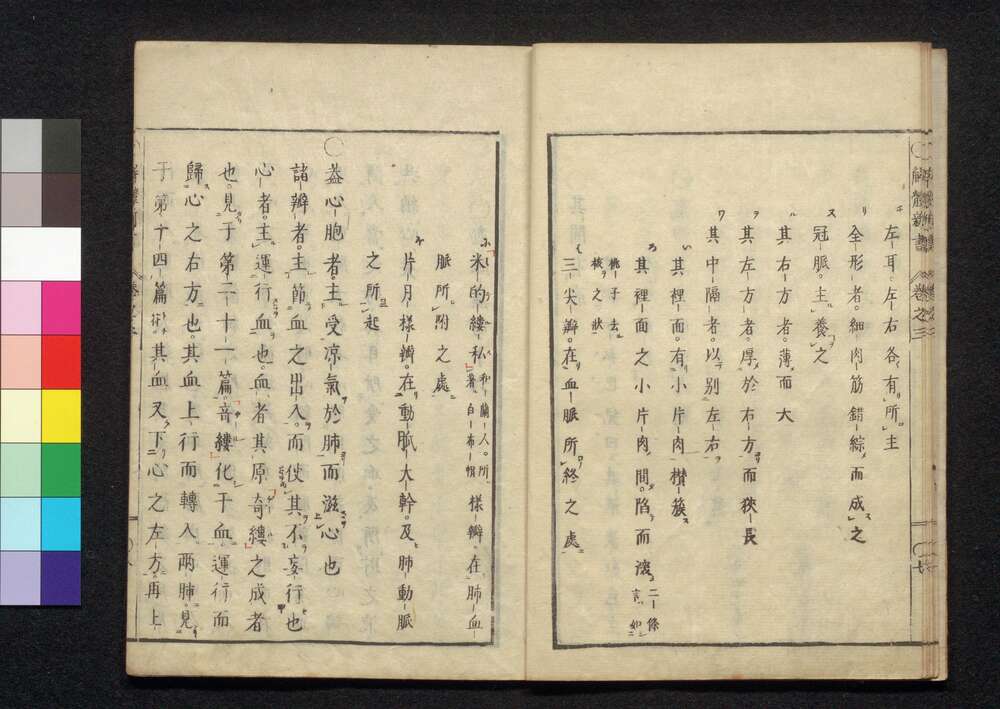 解體新書 卷之三
左耳左右各有所主
全形者細肉筋錯綜而成之
冠脈主養之
其右方者薄而大
其左方者厚於右方而狹長
其中隔者以別左右
其裡面有小片肉欑簇
其裡面之小片肉間陷而凌二條言如
桃子去
核之狀
三尖瓣在血脈所終之處
米的縷私和蘭人所著白布帽樣瓣在肺血
脈所附之處
片月樣瓣在動脈大幹及肺動脈
之所起
○蓋心胞者主受凉氣於肺而滋心也
諸瓣者主節血之出入而使其不妄行也
心者主運行血也血者其原奇縷之成者
也見于第二十一篇奇縷化于血運行而
歸心之右方也其血上行而轉入兩肺見
于第十四篇其血又下心之左方再上